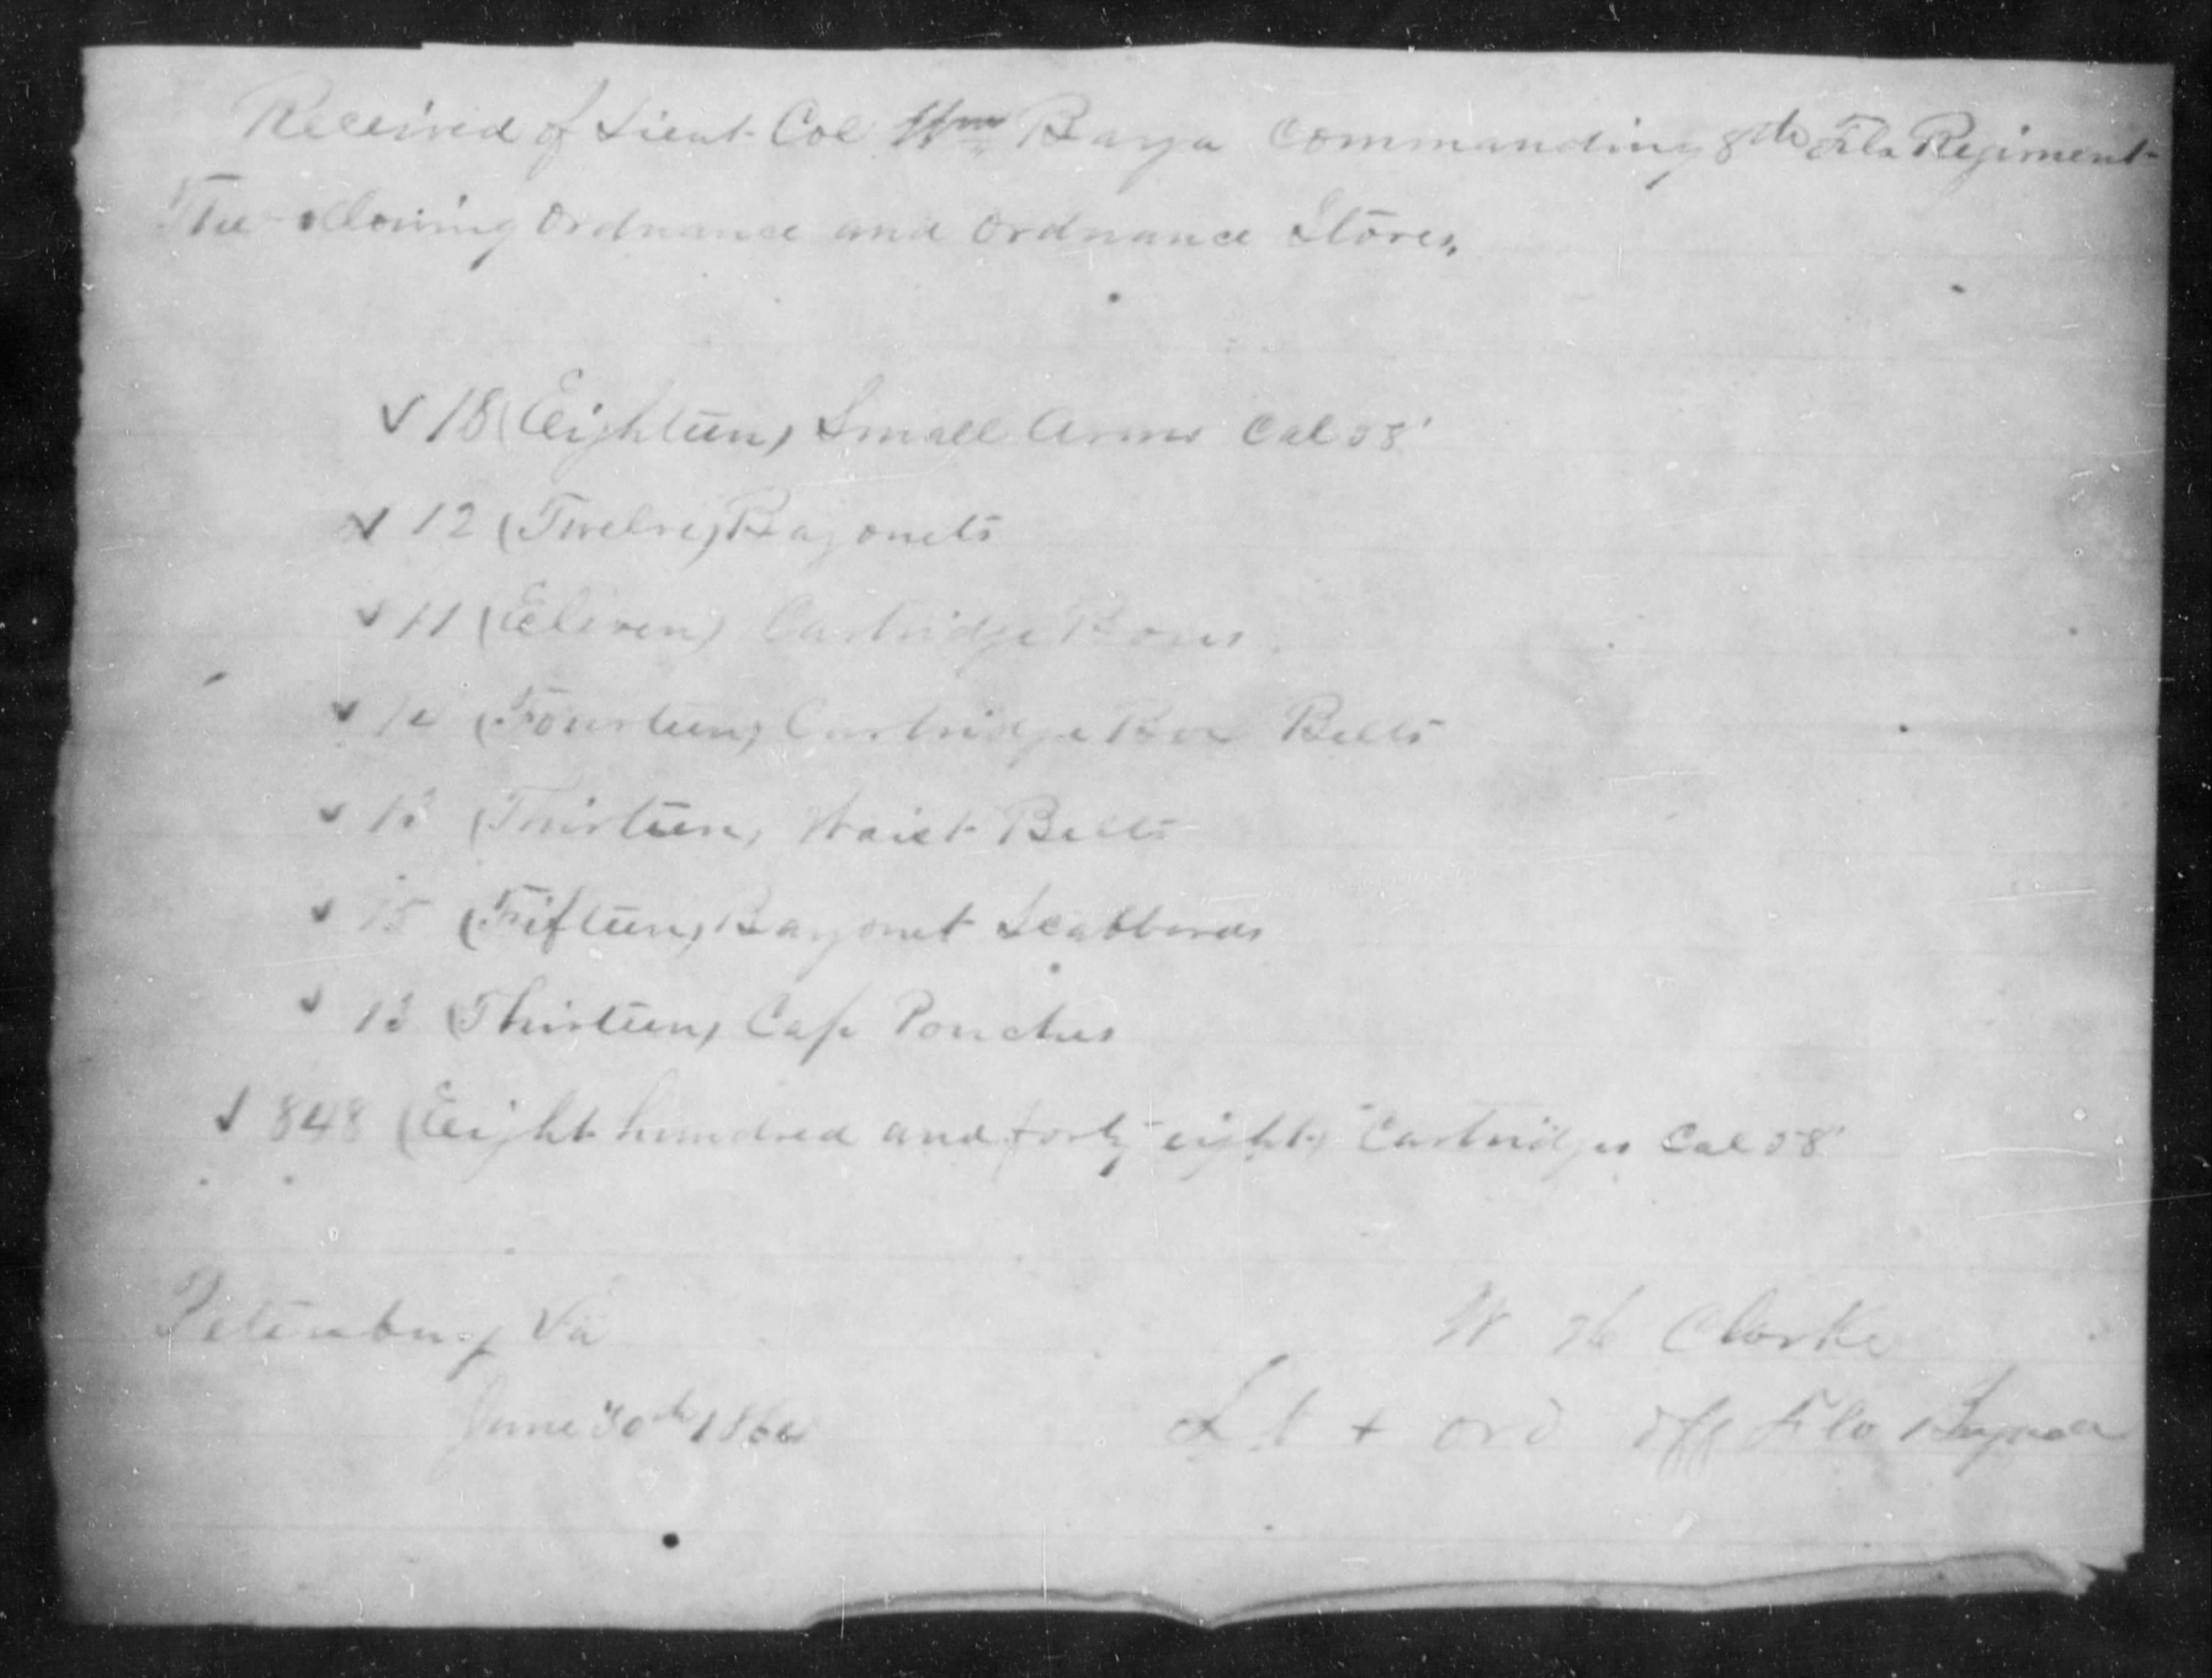 Received of Lieut Col Wm Baya Commanding 8th Fla Regiment
The following Ordnance and Ordnance Stores.
✓ 18 (Eighteen) Small Arms Cal 58'
✓ 12 (Twelve) Bayonets
✓ 11 (Eleven) Cartridge Boxes
✓ 14 (Fourteen) Cartridge Box Belts
✓ 13 (Thirteen) Waist Belts
✓ 15 (Fifteen) Bayonet Scabbords
✓ 13 (Thirteen) Cap Pouches
✓ 848 (Eight hundred and forty eight) Cartridges Cal 58'
Petersburg Va
W H Clarke
June 30th 1864
Lt + Ord Off Fla Brigade